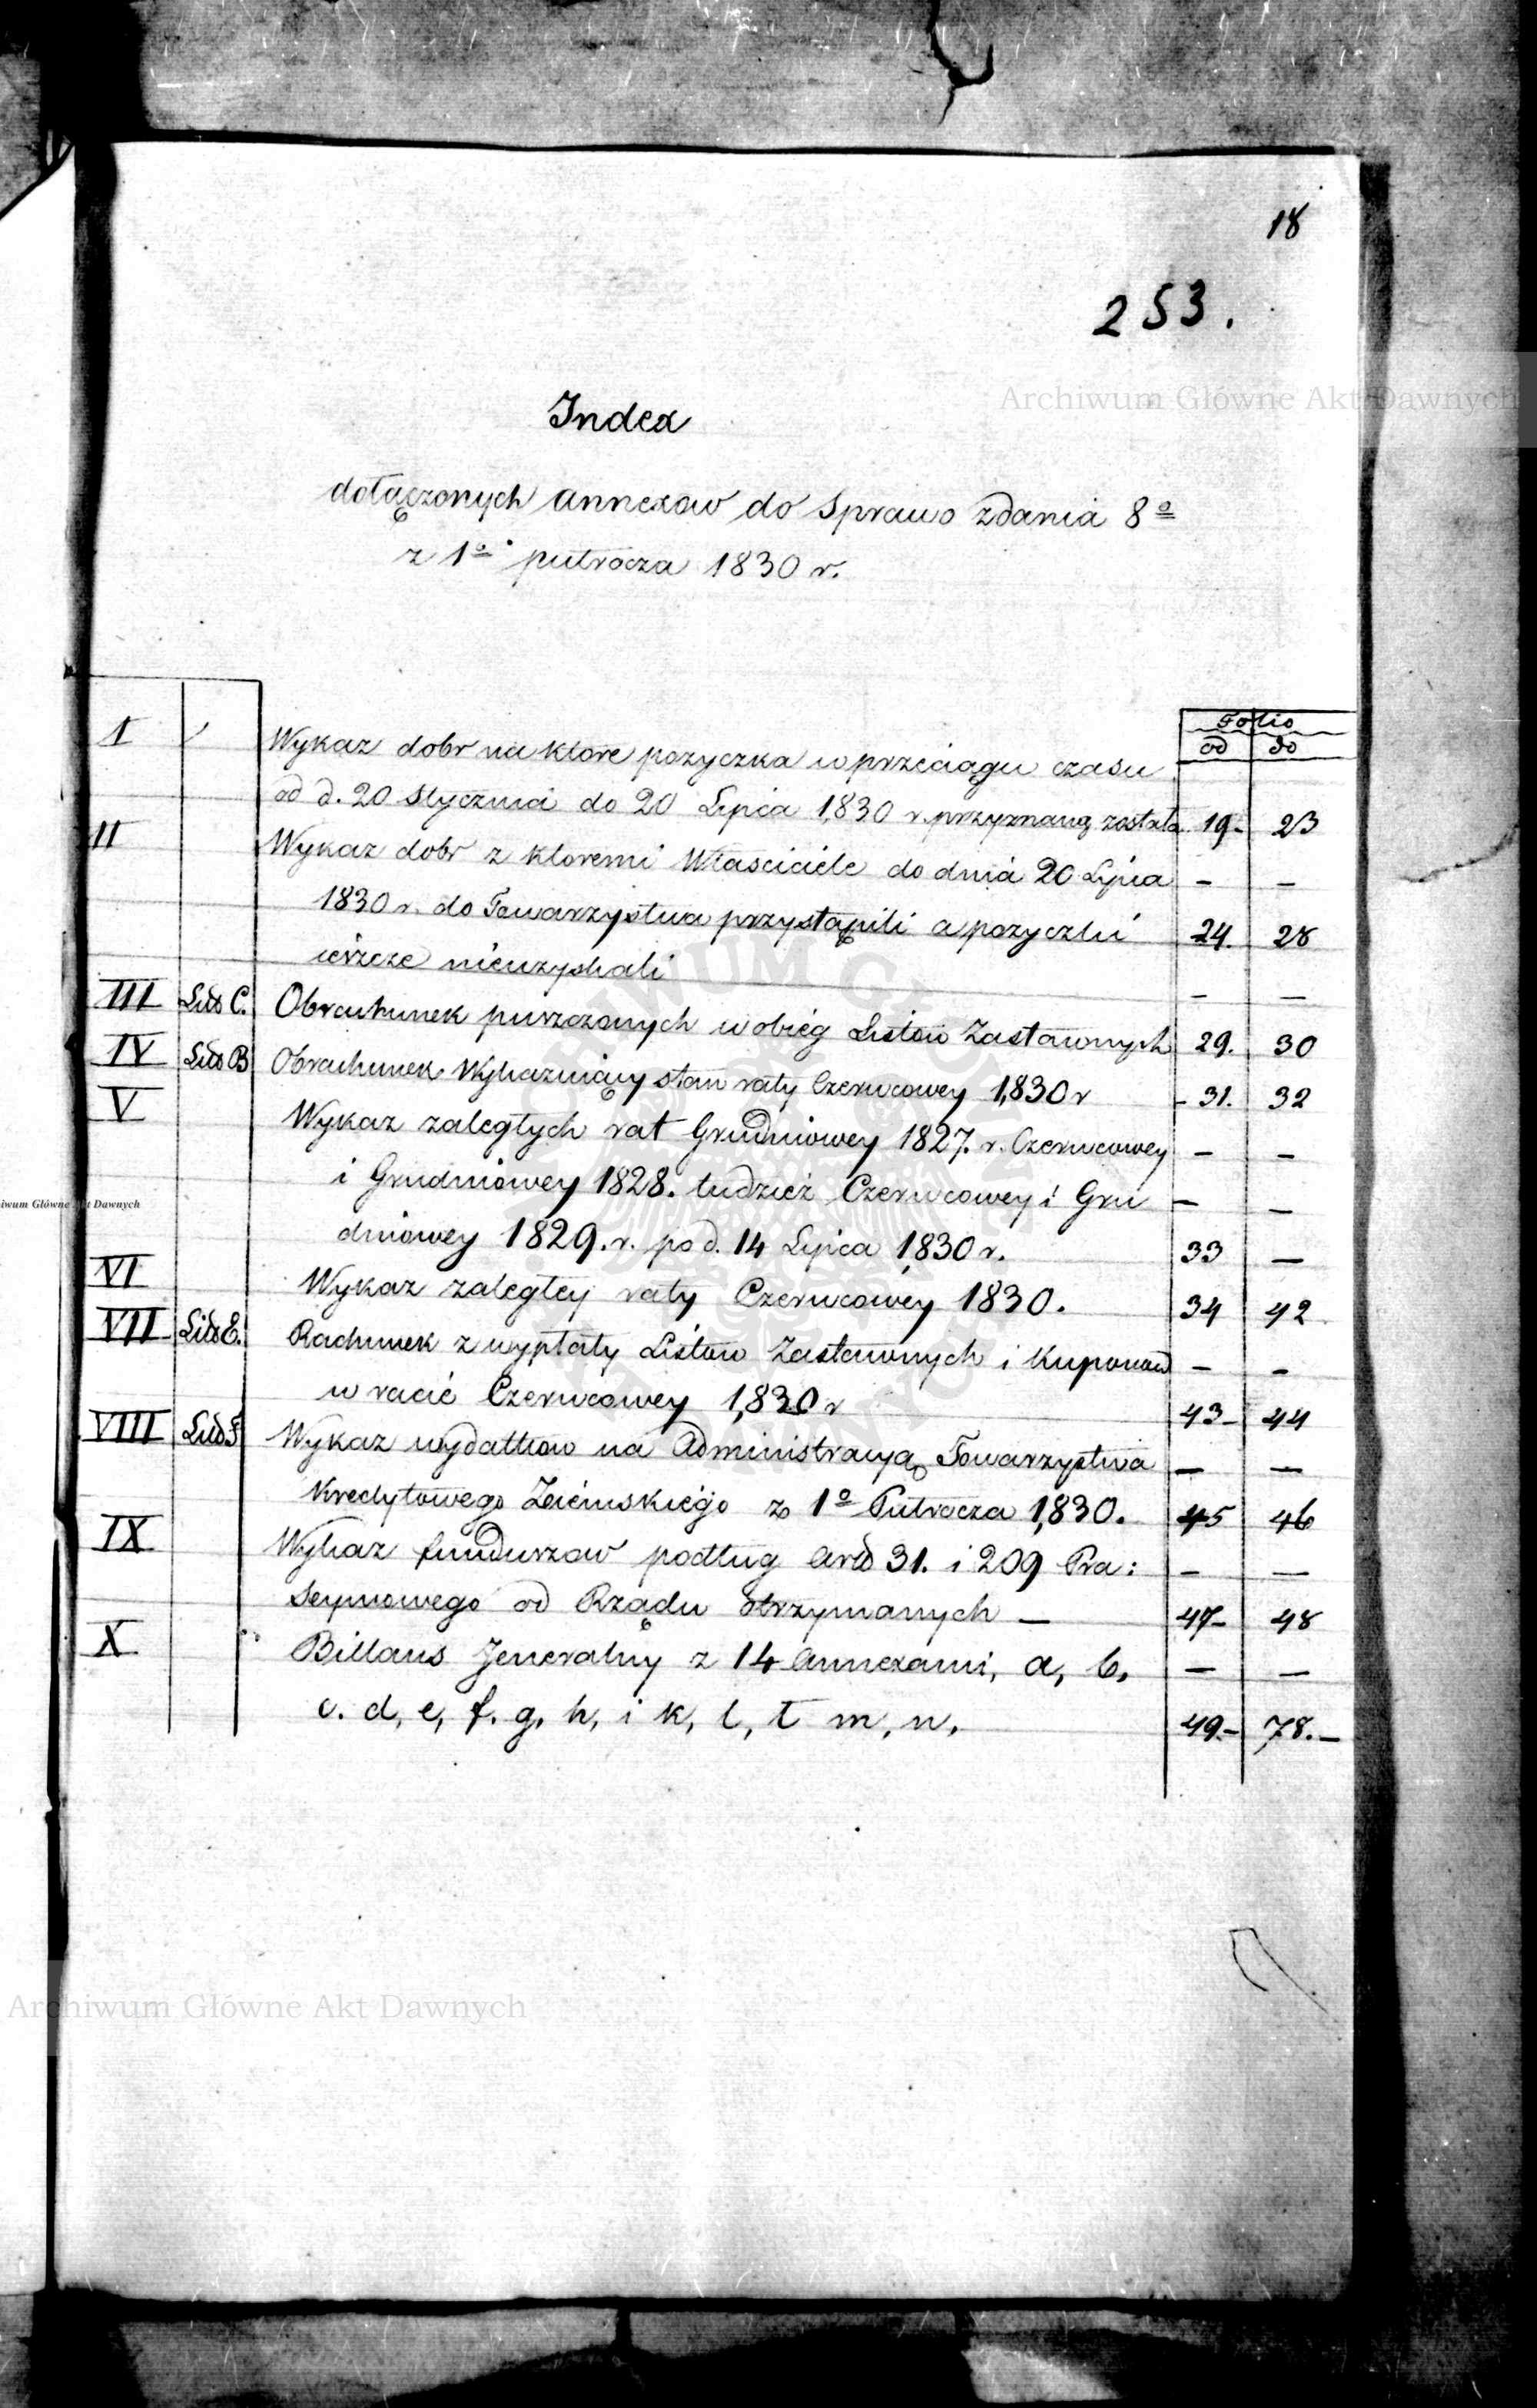 18
253.
Archiwum Główne Akt Dawnych
Index
dołączonych annexow do Sprawo zdania 8º
z 1º pułrocza 1830 r.
Folio
od do
I Wykaz dobr na ktore pozyczka w przeciągu czasu
od d. 20 Stycznia do 20 Lipca 1830 r. przyznaną została 19- 23
II Wykaz dobr z ktoremi Własciciele do dnia 20 Lipca – –
1830 r. do Towarzystwa przystąpili a pozyczki 24. 28
ieszcze nieuzyskali – –
III Litt C. Obrachunek puszczonych w obieg Listow Zastawnych 29. 30
IV Litt B Obrachunek Wykazuiący stan raty Czerwcowey 1830 r - 31. 32
V Wykaz zaległych rat Grudniowey 1827. r. Czerwcowey – –
i Grudniowey 1828. tudzież Czerwcowey i Gru – –
dniowey 1829. r. po d. 14 Lipca 1830 r. 33 –
iwum Główne Akt Dawnych
VI Wykaz zaległey raty Czerwcowey 1830. 34 42
VII Litt E. Rachunek z wypłaty Listow Zastawnych i Kuponow – –
w racie Czerwcowey 1830 r 43- 44
VIII Litt F Wykaz wydatkow na Administracyą Towarzystwa – –
Kredytowego Ziemskiego z 1º Pułrocza 1830. 45 46
IX Wykaz funduszow podług Artt 31. i 209 Pra: – –
Seymowego od Rządu otrzymanych – 47- 48
X Billans Jeneralny z 14 Annexami, a, b, – –
c. d, e, f. g, h, i k, l, ł m, n, 49.- 78.-
Archiwum Główne Akt Dawnych